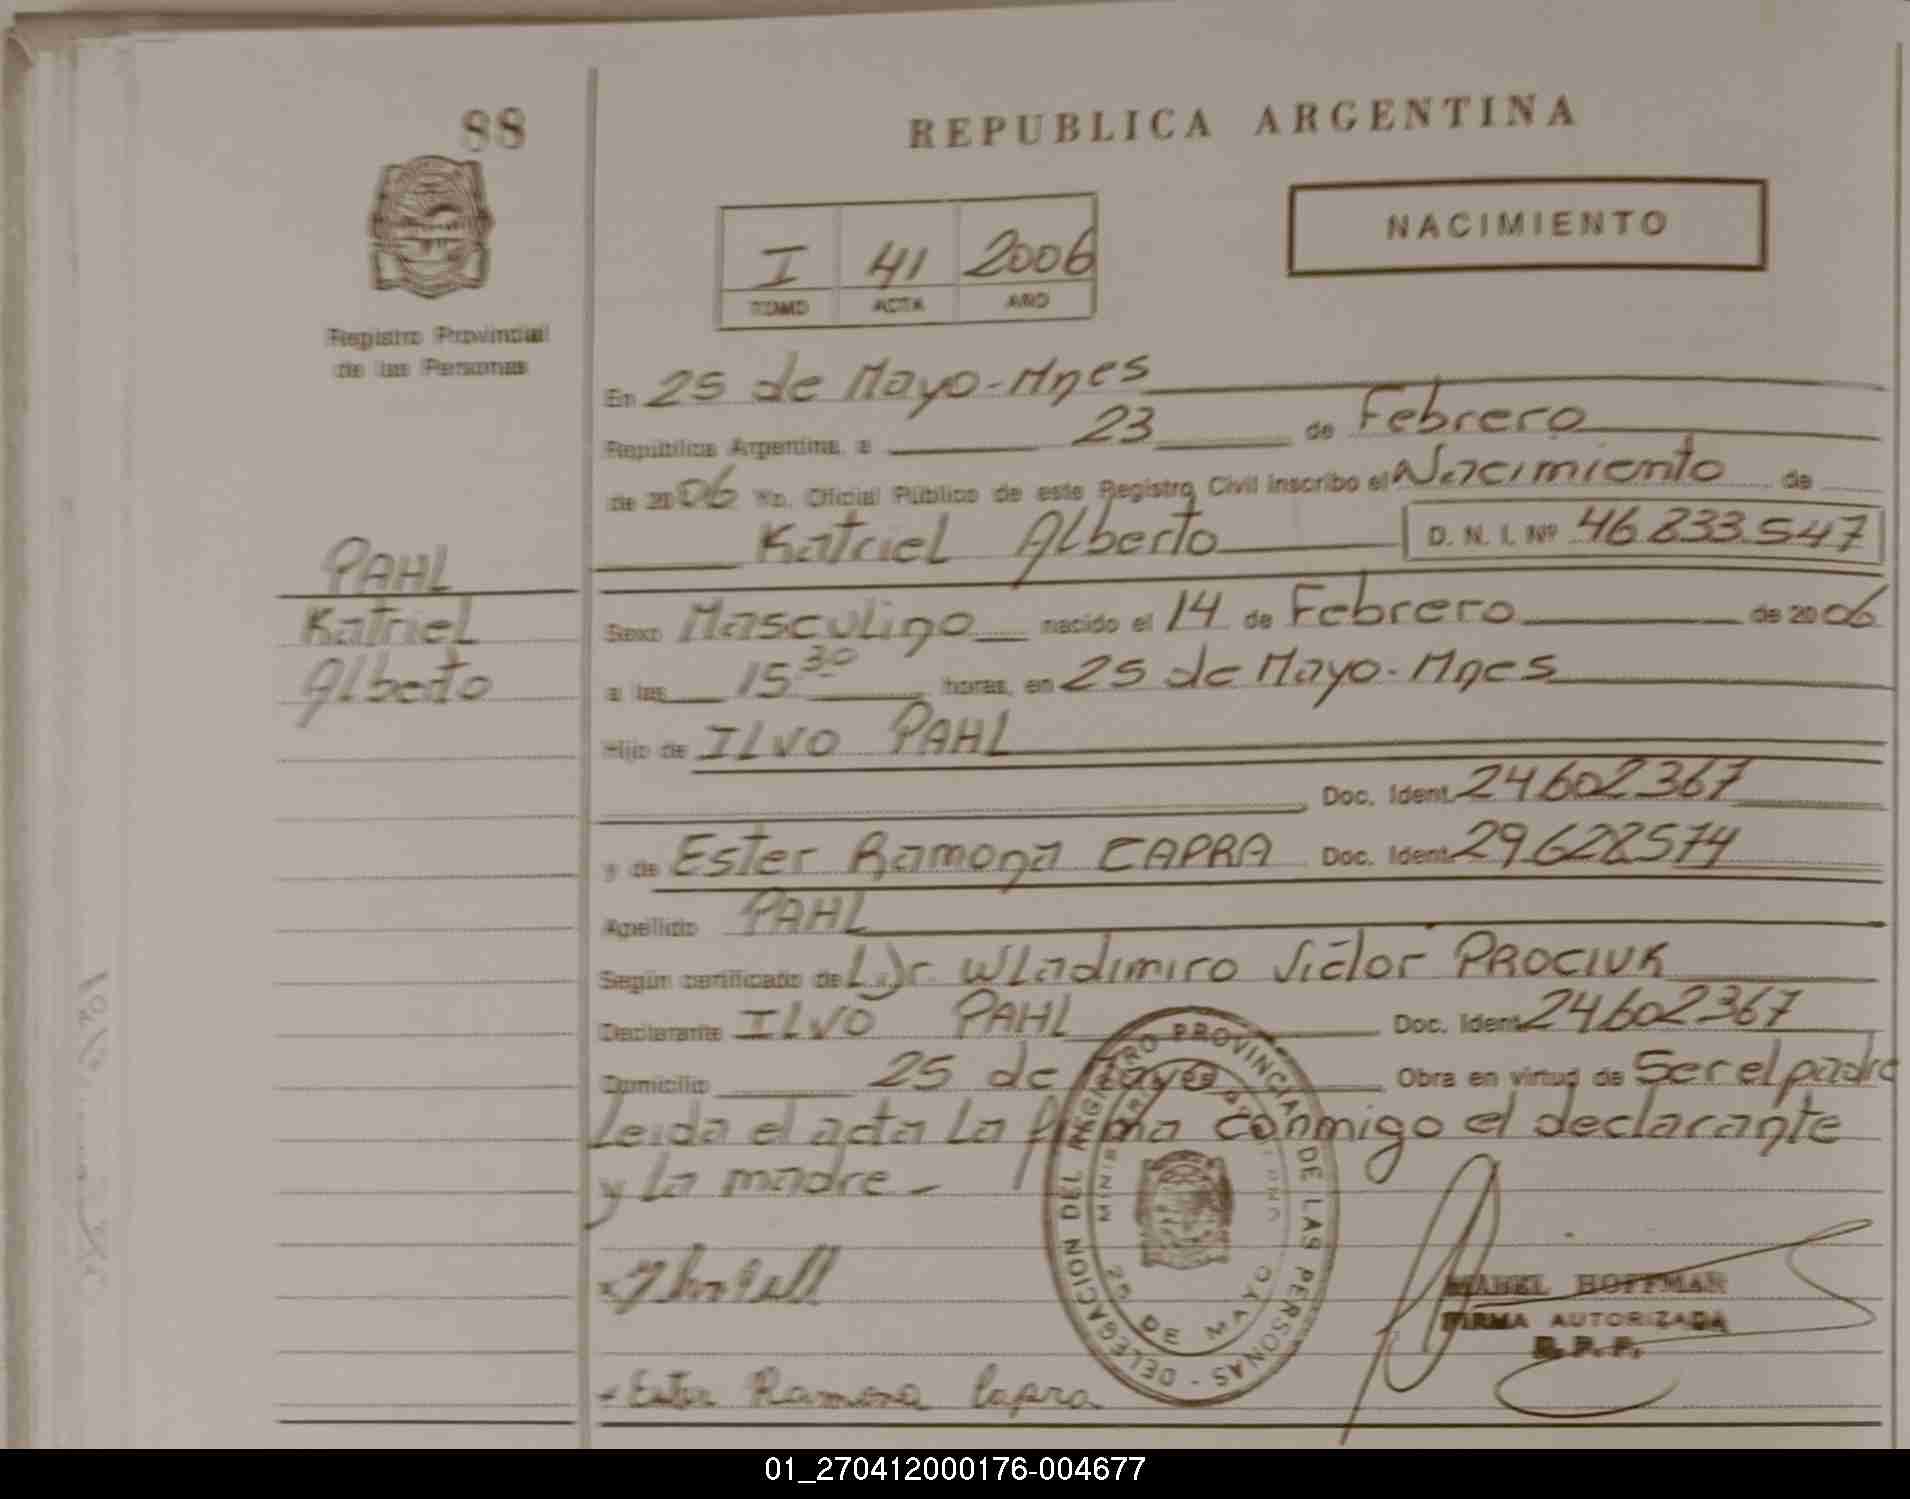 88
REPUBLICA ARGENTINA
NACIMIENTO
I 41 2006
TOMO ACTA AÑO
Registro Provincial
de las Personas
En 25 de Mayo-Mnes
República Argentina, a 23 de Febrero
de 2006 Yo, Oficial Público de este Registro Civil inscribo el Nacimiento de
Katriel Alberto D. N. I. Nº 46.833.547
PAHL
Katriel
Alberto
Sexo Masculino nacido el 14 de Febrero de 2006
a las 15:30 horas, en 25 de Mayo-Mnes
Hijo de ILVO PAHL
Doc. Ident. 24602367
y de Ester Ramona CAPRA Doc. Ident. 29.628.574
Apellido PAHL
Según certificado de Dr. Wladimiro Victor PROCIUK
Declarante ILVO PAHL Doc. Ident. 24602367
Domicilio 25 de Mayo Obra en virtud de Ser el padre
Leida el acta la firma conmigo el declarante
y la madre.-
DELEGACION DEL REGISTRO PROVINCIAL DE LAS PERSONAS
25 DE MAYO
MABEL HOFFMAN
FIRMA AUTORIZADA
R. P. P.
Ester Ramona Capra
01_270412000176-004677